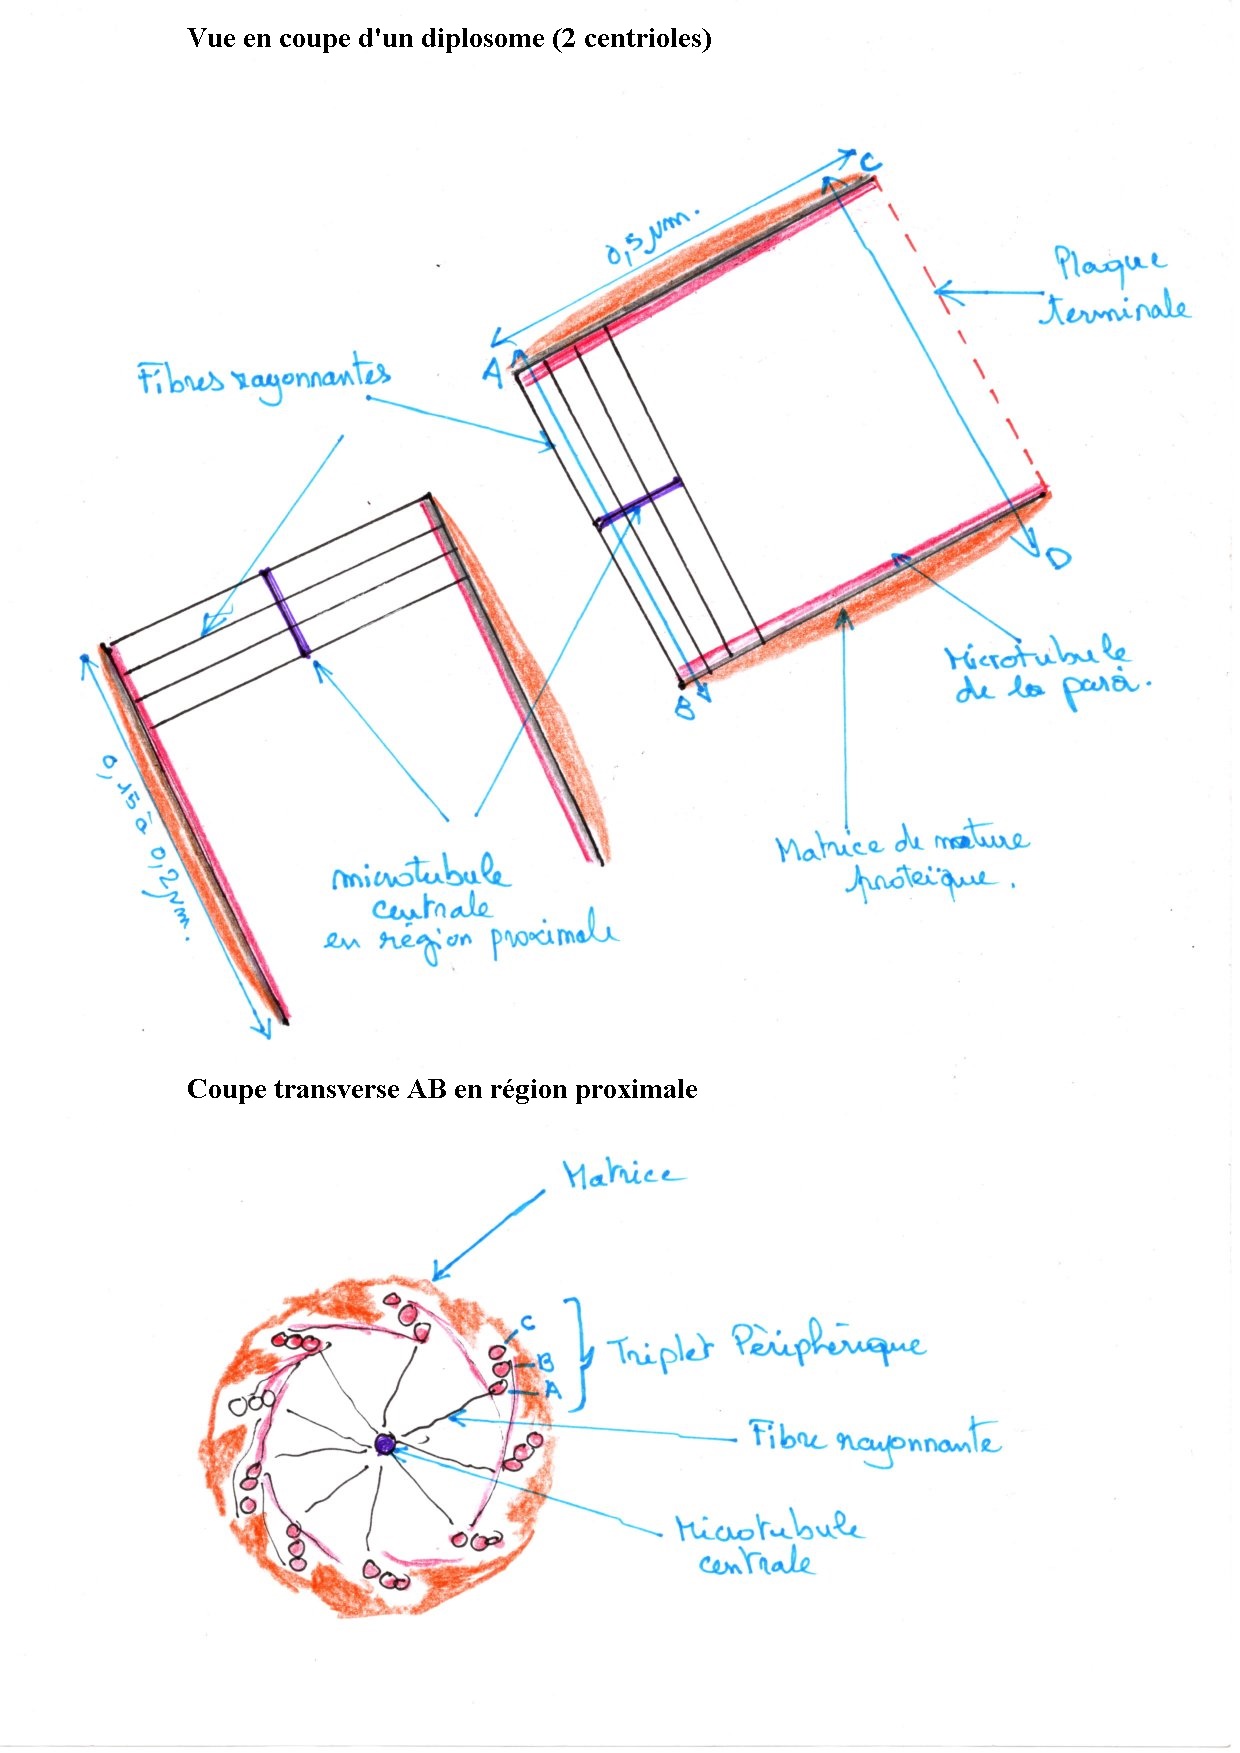 Vue en coupe d'un diplosome (2 centrioles)
C
0,5 µm.
Plaque
terminale
A
Fibres rayonnantes
D
Microtubule
de la paroi.
B
0,15 à 0,2 µm.
Matrice de nature
protéïque.
microtubule
centrale
en région proximale
Coupe transverse AB en région proximale
Matrice
C
B
A
Triplet Périphérique
Fibre rayonnante
Microtubule
centrale